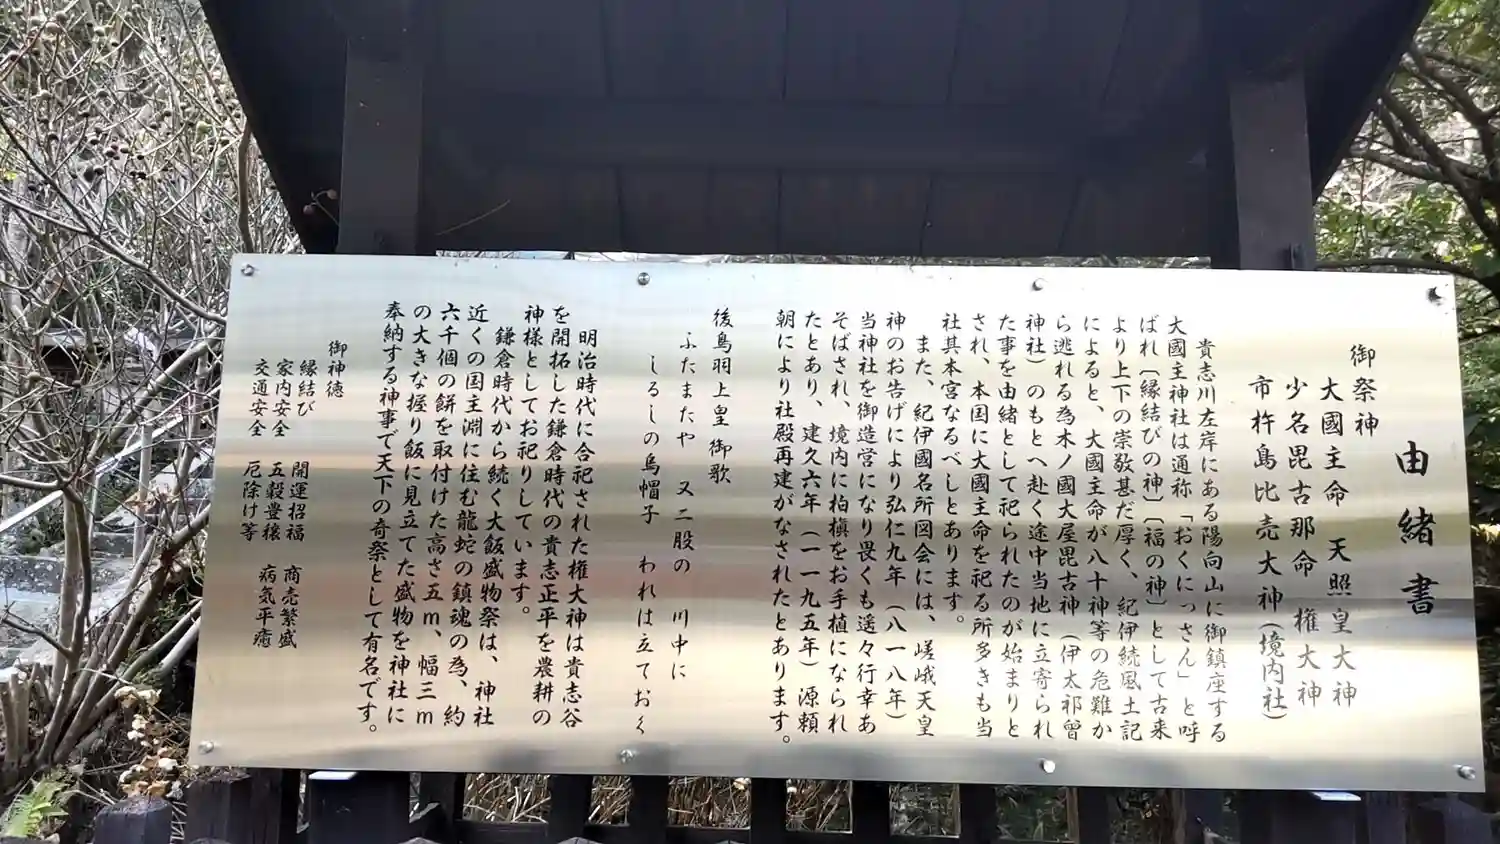 由緒書
御祭神
大國主命 天照皇大神
少名毘古那命 権大神
市杵島比売大神(境内社)
貴志川左岸にある陽向山に御鎮座する
大國主神社は通称「おくにっさん」と呼
ばれ〔縁結びの神〕〔福の神〕として古来
より上下の崇敬甚だ厚く、紀伊続風土記
によると、大國主命が八十神等の危難か
ら逃れる為木ノ國大屋毘古神(伊太祁曽
神社)のもとへ赴く途中当地に立寄られ
た事を由緒として祀られたのが始まりと
され、本国に大國主命を祀る所多きも当
社其本宮なるべしとあります。
また、紀伊國名所図会には、嵯峨天皇
神のお告げにより弘仁九年(八一八年)
当神社を御造営になり畏くも遥々行幸あ
そばされ、境内に柏槇をお手植になられ
たとあり、建久六年(一一九五年)源頼
朝により社殿再建がなされたとあります。
後鳥羽上皇 御歌
ふたまたや 又二股の 川中に
しるしの烏帽子 われは立ておく
明治時代に合祀された権大神は貴志谷
を開拓した鎌倉時代の貴志正平を農耕の
神様としてお祀りしています。
鎌倉時代から続く大飯盛物祭は、神社
近くの国主淵に住む龍蛇の鎮魂の為、約
六千個の餅を取付けた高さ五m、幅三m
の大きな握り飯に見立てた盛物を神社に
奉納する神事で天下の奇祭として有名です。
御神徳
縁結び 開運招福 商売繁盛
家内安全 五穀豊穣 病気平癒
交通安全 厄除け等